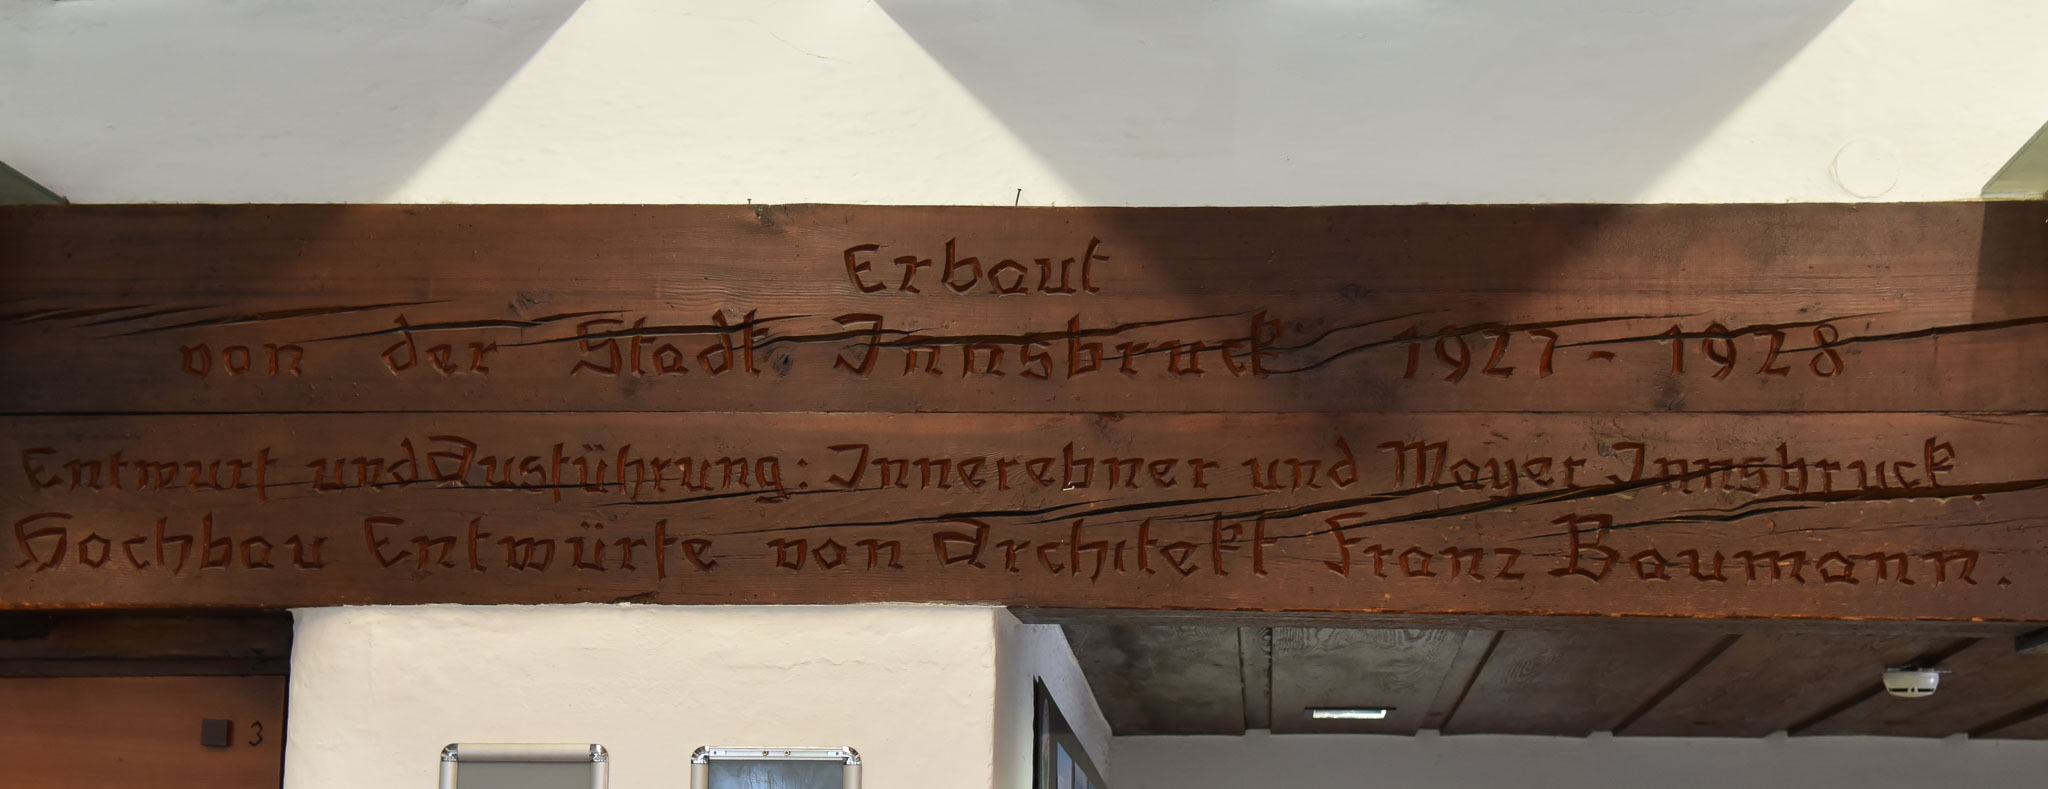 Erbaut
von der Stadt Innsbruck 1927 - 1928
Entwurf und Ausführung: Innerebner und Mayer Innsbruck.
Hochbau Entwürfe von Architekt Franz Baumann.
3